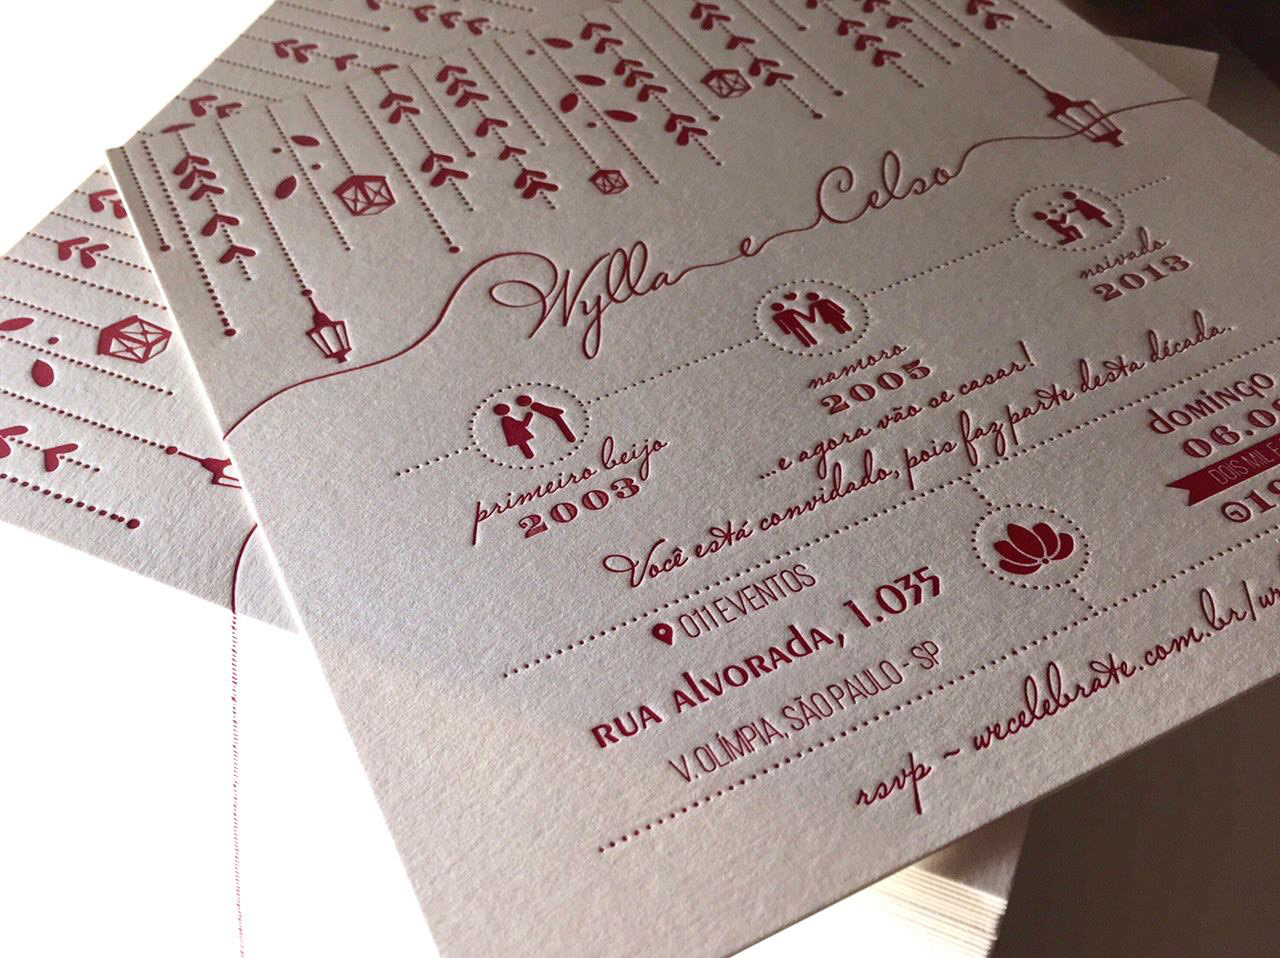 Wylla e Celso
primeiro beijo
2003
namoro
2005
noivado
2013
...e agora vão se casar!
Você está convidado, pois faz parte desta década.
011 EVENTOS
RUA ALVORADA, 1.035
V. OLÍMPIA, SÃO PAULO - SP
DOMINGO
06.0
DOIS MIL E
rsvp ~ wecelebrate.com.br/